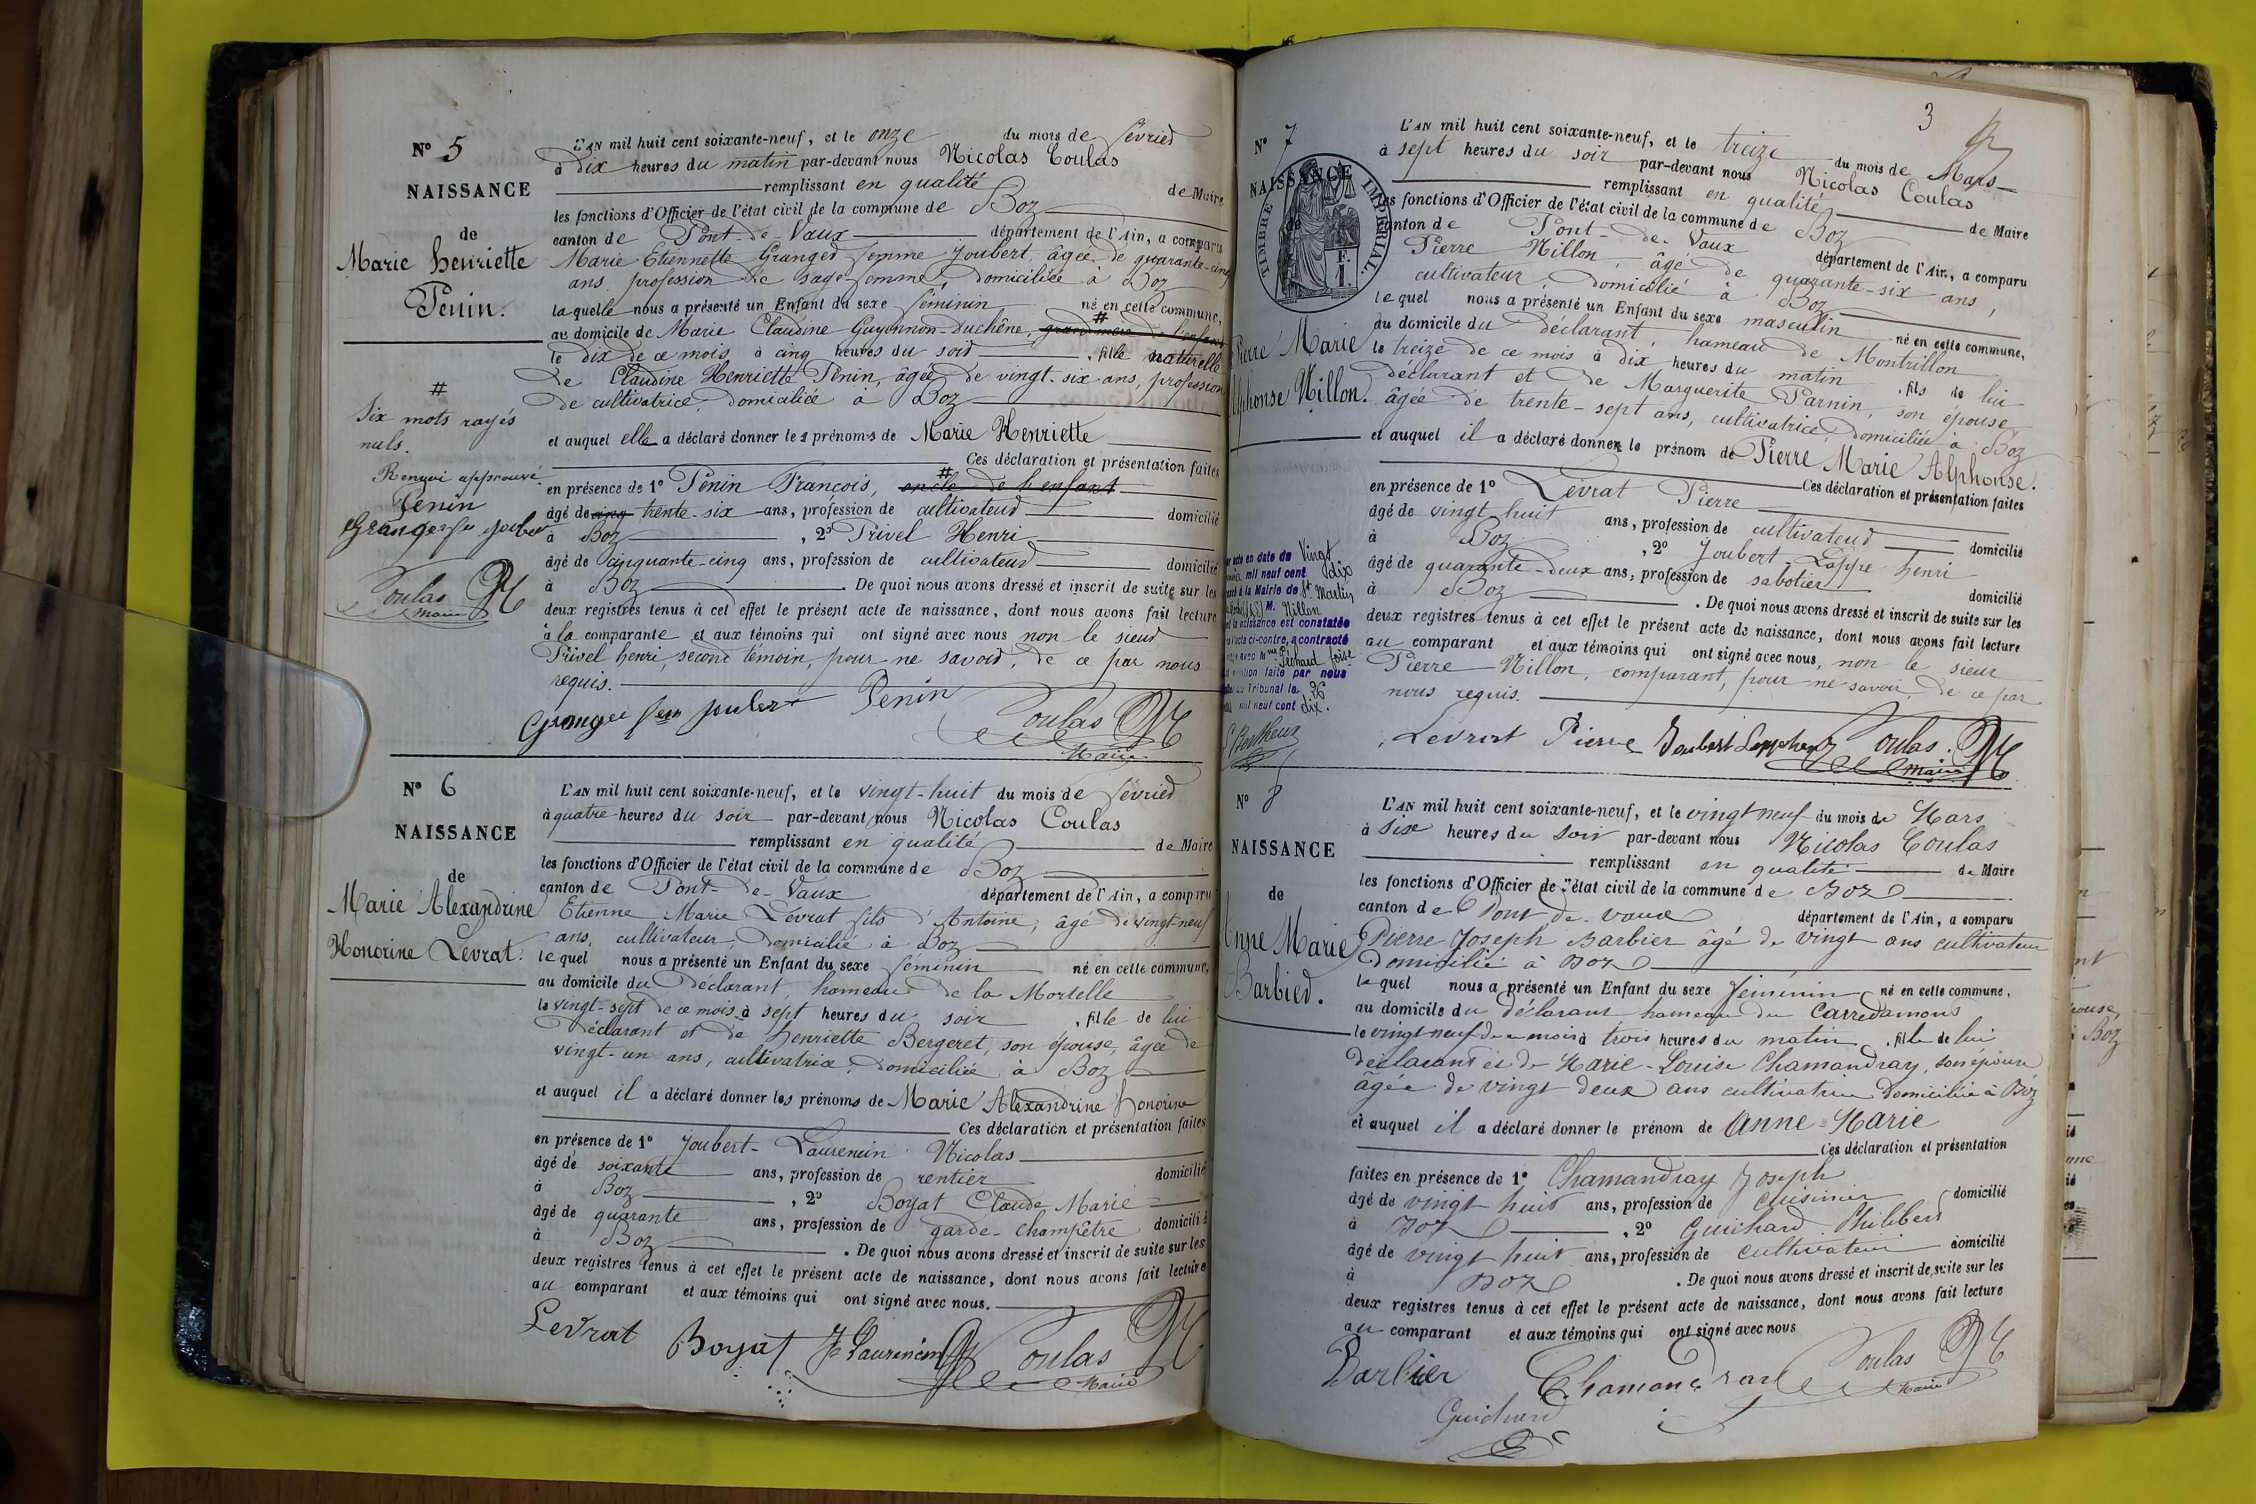 N° 5
NAISSANCE
de
Marie henriette
Penin.
#
Six mots rayés
nuls.
Renvoi approuvé
Penin
Coulas
Maire
L'AN mil huit cent soixante-neuf, et le onze du mois de février
à dix heures du matin par-devant nous Nicolas Coulas
remplissant en qualité de Maire
les fonctions d'Officier de l'état civil de la commune de Boz
canton de Pont-de-Vaux département de l'Ain, a comparu
Marie Etiennette Granger femme Joubert, âgée de quarante-cinq
ans, profession de sage femme, domiciliée à Boz
la quelle nous a présenté un Enfant du sexe féminin né en cette commune,
au domicile de Marie Claudine Guyennon-Duchêne, # grand'mère de l'enfant
le dix de ce mois, à cinq heures du soir, fille naturelle
de Claudine Henriette Penin, âgée de vingt-six ans, profession
de cultivatrice, domiciliée à Boz
et auquel elle a déclaré donner les prénoms de Marie Henriette
Ces déclaration et présentation faites
en présence de 1° Penin François, # oncle de l'enfant
âgé de cinq trente-six ans, profession de cultivateur domicilié
à Boz, 2° Privel Henri
âgé de cinquante-cinq ans, profession de cultivateur domicilié
à Boz. De quoi nous avons dressé et inscrit de suite sur les
deux registres tenus à cet effet le présent acte de naissance, dont nous avons fait lecture
à la comparante et aux témoins qui ont signé avec nous non le sieur
Privel henri, second témoin, pour ne savoir, de ce par nous
requis.
Penin Coulas
Maire
N° 6
NAISSANCE
de
Marie Alexandrine
Honorine Levrat.
L'AN mil huit cent soixante-neuf, et le vingt-huit du mois de février
à quatre heures du soir par-devant nous Nicolas Coulas
remplissant en qualité de Maire
les fonctions d'Officier de l'état civil de la commune de Boz
canton de Pont-de-Vaux département de l'Ain, a comparu
Etienne Marie Levrat fils d'Antoine, âgé de vingt-neuf
ans, cultivateur, domicilié à Boz
le quel nous a présenté un Enfant du sexe féminin né en cette commune,
au domicile du déclarant, hameau de la Mortelle
le vingt-sept de ce mois à sept heures du soir, fille de lui
déclarant et de henriette Bergeret, son épouse, âgée de
vingt-un ans, cultivatrice, domiciliée à Boz
et auquel il a déclaré donner les prénoms de Marie Alexandrine honorine
Ces déclaration et présentation faites
en présence de 1° Joubert-Laurencin Nicolas
âgé de soixante ans, profession de rentier domicilié
à Boz, 2° Boyat Claude Marie
âgé de quarante ans, profession de garde-champêtre domicilié
à Boz. De quoi nous avons dressé et inscrit de suite sur les
deux registres tenus à cet effet le présent acte de naissance, dont nous avons fait lecture
au comparant et aux témoins qui ont signé avec nous.
Levrat Boyat J Laurencin Coulas
Maire
3
N° 7
NAISSANCE
de
TIMBRE IMPERIAL
1 F.
Pierre Marie
Alphonse Nillon.
L'AN mil huit cent soixante-neuf, et le treize du mois de Mars
à sept heures du soir par-devant nous Nicolas Coulas
remplissant en qualité de Maire
les fonctions d'Officier de l'état civil de la commune de Boz
canton de Pont-de-Vaux département de l'Ain, a comparu
Pierre Nillon, âgé de quarante-six ans,
cultivateur, domicilié à Boz
le quel nous a présenté un Enfant du sexe masculin né en cette commune,
au domicile du déclarant, hameau de Montrillon
le treize de ce mois à dix heures du matin, fils de lui
déclarant et de Marguerite Parnin, son épouse,
âgée de trente-sept ans, cultivatrice, domiciliée à Boz
et auquel il a déclaré donner le prénom de Pierre Marie Alphonse.
Ces déclaration et présentation faites
en présence de 1° Levrat Pierre
âgé de vingt huit ans, profession de cultivateur domicilié
à Boz, 2° Joubert Lappe henri
âgé de quarante-deux ans, profession de sabotier domicilié
à Boz. De quoi nous avons dressé et inscrit de suite sur les
deux registres tenus à cet effet le présent acte de naissance, dont nous avons fait lecture
au comparant et aux témoins qui ont signé avec nous, non le sieur
Pierre Nillon, comparant, pour ne savoir, de ce par
nous requis.
acte en date du Vingt
mil neuf cent dix
à la Mairie de St Martin
M. Nillon
la naissance est constatée
l'acte ci-contre, a contracté
avec Melle Péchard
mention faite par nous
Tribunal le 26
mil neuf cent dix.
Levrat Pierre Joubert Coulas
Maire
N° 8
NAISSANCE
de
Anne Marie
Barbier.
L'AN mil huit cent soixante-neuf, et le vingt neuf du mois de Mars
à six heures du soir par-devant nous Nicolas Coulas
remplissant en qualité de Maire
les fonctions d'Officier de l'état civil de la commune de Boz
canton de Pont de Vaux département de l'Ain, a comparu
Pierre Joseph Barbier âgé de vingt ans cultivateur
domicilié à Boz
le quel nous a présenté un Enfant du sexe féminin né en cette commune,
au domicile du déclarant hameau du Carredamons
le vingt neuf de ce mois à trois heures du matin, fille de lui
déclarant et de Marie-Louise Chamandray, son épouse
âgée de vingt deux ans cultivatrice domiciliée à Boz
et auquel il a déclaré donner le prénom de Anne-Marie
Ces déclaration et présentation
faites en présence de 1° Chamandray Joseph
âgé de vingt huit ans, profession de cuisinier domicilié
à Boz, 2° Guichard Philibert
âgé de vingt huit ans, profession de cultivateur domicilié
à Boz. De quoi nous avons dressé et inscrit de suite sur les
deux registres tenus à cet effet le présent acte de naissance, dont nous avons fait lecture
au comparant et aux témoins qui ont signé avec nous
Barbier Chamandray Coulas
Maire
Guichard